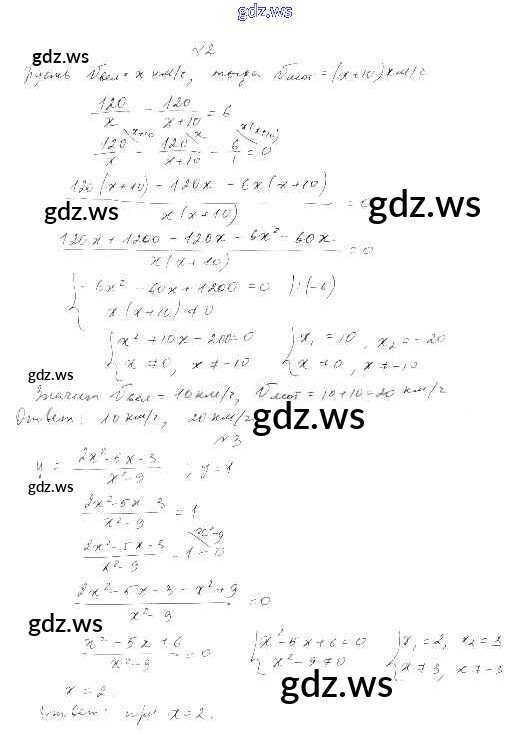 gdz.ws
№2
gdz.ws
Пусть Vвел = x км/ч, тогда Vмот = (x+10) км/ч
120/x − 120/(x+10) = 6
120/x − 120/(x+10) − 6/1 = 0
gdz.ws
(120(x+10) − 120x − 6x(x+10))/(x(x+10)) = 0
gdz.ws
(120x + 1200 − 120x − 6x² − 60x)/(x(x+10)) = 0
{ −6x² − 60x + 1200 = 0 |:(−6)
x(x+10) ≠ 0
{ x² + 10x − 200 = 0 { x₁ = 10, x₂ = −20
x ≠ 0, x ≠ −10 x ≠ 0, x ≠ −10
gdz.ws
Значит Vвел = 10 км/ч, Vмот = 10+10 = 20 км/ч
Ответ: 10 км/ч, 20 км/ч
gdz.ws
№3
y = (2x² − 5x − 3)/(x² − 9) ; y = 1
gdz.ws
(2x² − 5x − 3)/(x² − 9) = 1
(2x² − 5x − 3)/(x² − 9) − 1 = 0
gdz.ws
(2x² − 5x − 3 − x² + 9)/(x² − 9) = 0
gdz.ws
(x² − 5x + 6)/(x² − 9) = 0 { x² − 5x + 6 = 0 { x₁ = 2, x₂ = 3
x² − 9 ≠ 0 x ≠ 3, x ≠ −3
gdz.ws
x = 2.
Ответ: при x = 2.